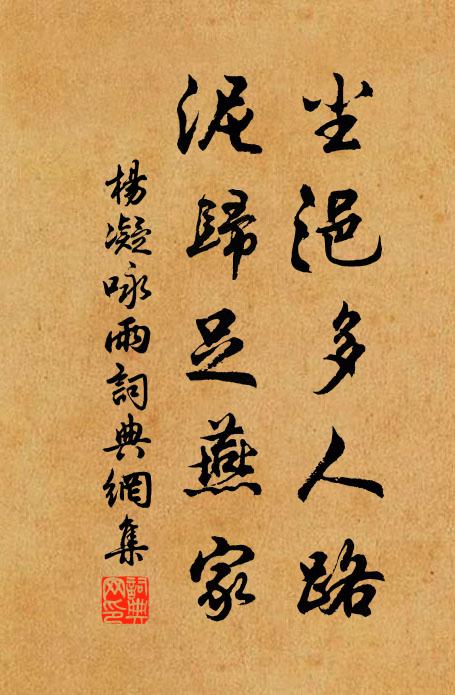 尘浥多人路
泥歸足燕家
楊凝咏雨詞典網集
詞典
网印